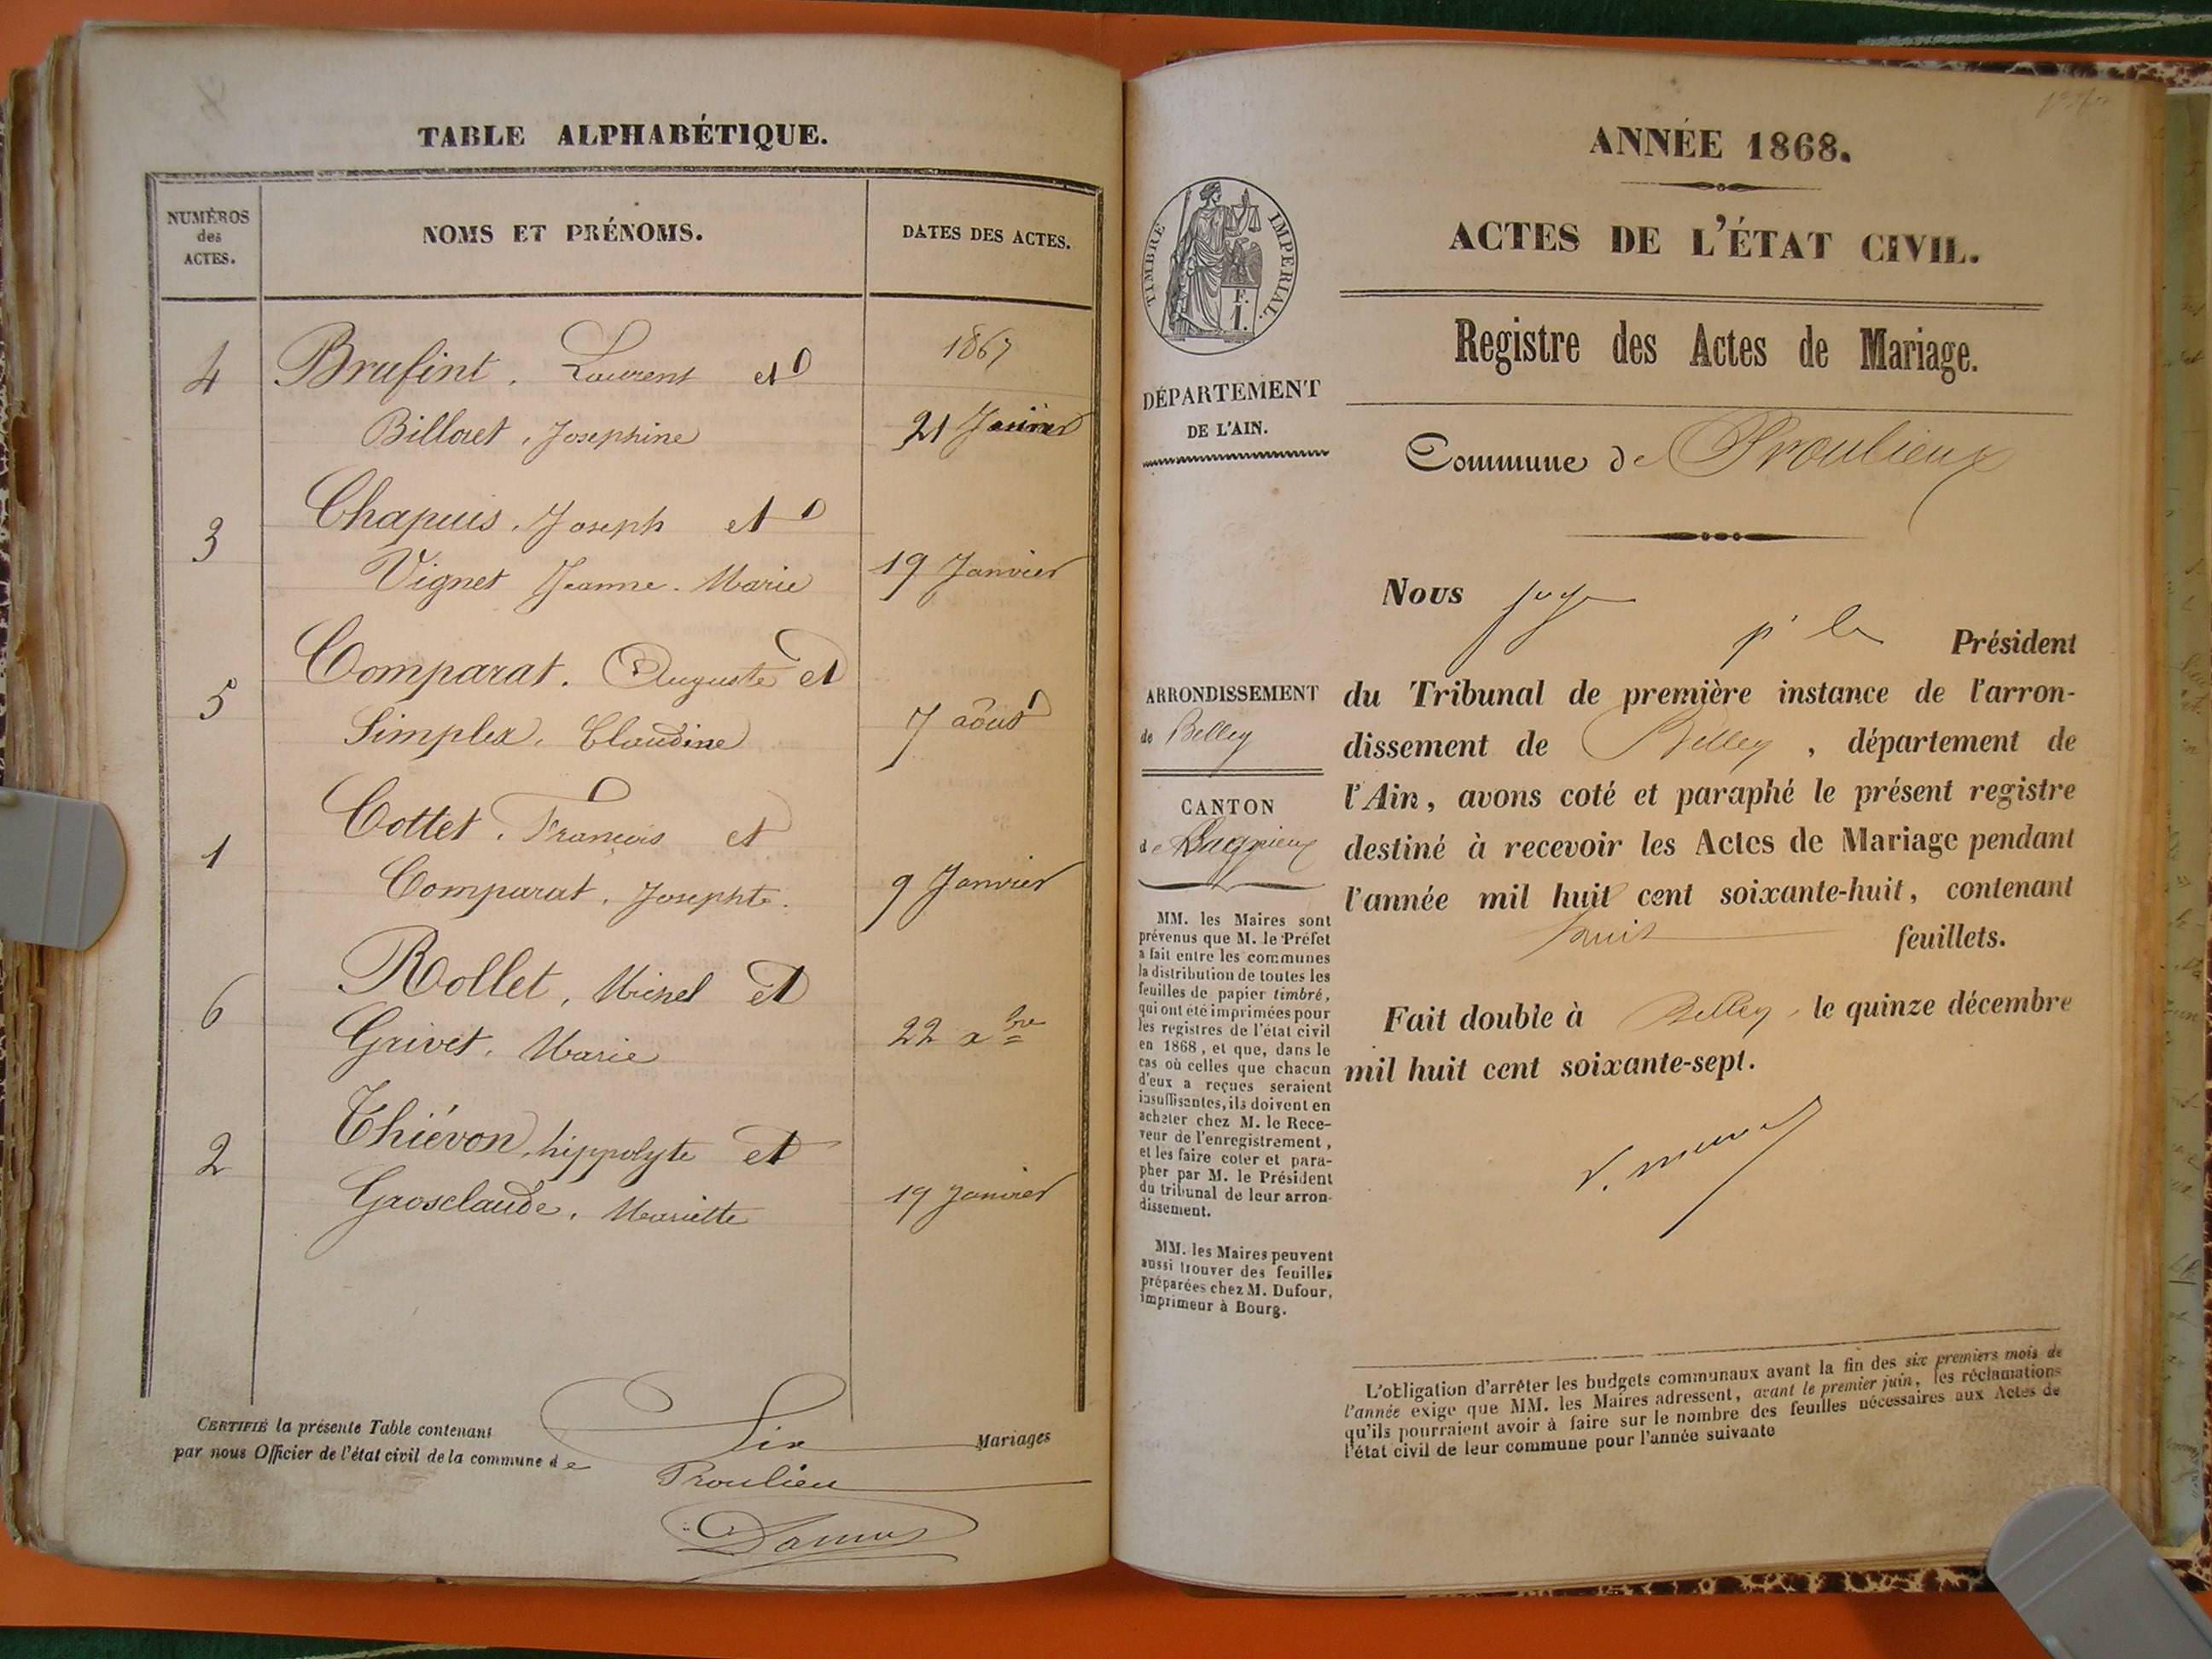 TABLE ALPHABÉTIQUE.
NUMÉROS
des
ACTES.
NOMS ET PRÉNOMS.
DATES DES ACTES.
4 Brufint, Laurent et 1867
Billoret, Josephine 21 Janvier
3 Chapuis, Joseph et
Vignet Jeanne-Marie 19 Janvier
5 Comparat, Auguste et
Simplex, Claudine 7 août
1 Cottet, François et
Comparat, Josephte. 9 Janvier
6 Rollet, Michel et
Grivet, Marie 22 xbre
2 Thiévon, hippolyte et
Grosclaude, Mariette 19 janvier
CERTIFIÉ la présente Table contenant Six Mariages
par nous Officier de l'état civil de la commune de Proulieu
ANNÉE 1868.
ACTES DE L'ÉTAT CIVIL.
TIMBRE IMPERIAL.
F.
1.
Registre des Actes de Mariage.
DÉPARTEMENT
DE L'AIN.
Commune de Proulieux
Nous juge pr le Président
du Tribunal de première instance de l'arron-
dissement de Belley, département de
l'Ain, avons coté et paraphé le présent registre
destiné à recevoir les Actes de Mariage pendant
l'année mil huit cent soixante-huit, contenant
huit feuillets.
Fait double à Belley, le quinze décembre
mil huit cent soixante-sept.
ARRONDISSEMENT
de Belley
CANTON
de Lagnieux
MM. les Maires sont
prévenus que M. le Préfet
a fait entre les communes
la distribution de toutes les
feuilles de papier timbré,
qui ont été imprimées pour
les registres de l'état civil
en 1868, et que, dans le
cas où celles que chacun
d'eux a reçues seraient
insuffisantes, ils doivent en
acheter chez M. le Rece-
veur de l'enregistrement,
et les faire coter et para-
pher par M. le Président
du tribunal de leur arron-
dissement.
MM. les Maires peuvent
aussi trouver des feuilles
préparées chez M. Dufour,
imprimeur à Bourg.
L'obligation d'arrêter les budgets communaux avant la fin des six premiers mois de
l'année exige que MM. les Maires adressent, avant le premier juin, les réclamations
qu'ils pourraient avoir à faire sur le nombre des feuilles nécessaires aux Actes de
l'état civil de leur commune pour l'année suivante